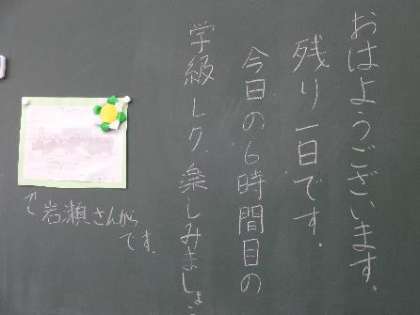 おはようございます。
残り一日です。
今日の6時間目の
学級レク楽しみましょ
岩瀬さんから
です。